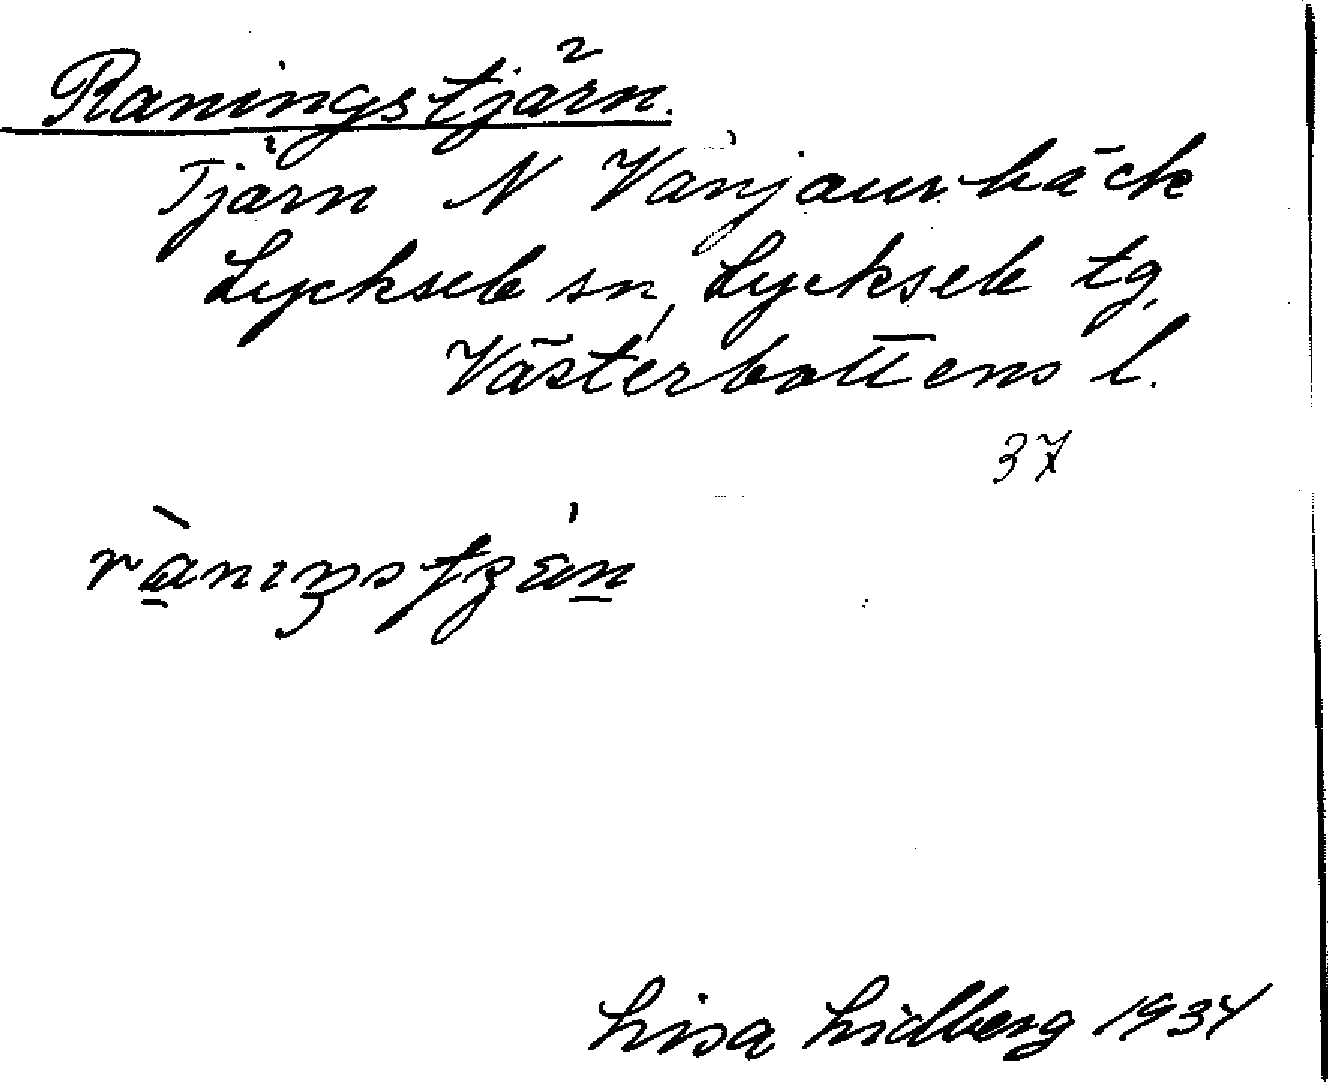 Raningstjärn.
Tjärn N Vänjaurbäck
Lycksele sn, Lycksele tg,
Västerbottens l.
37
Lisa Lidberg 1934